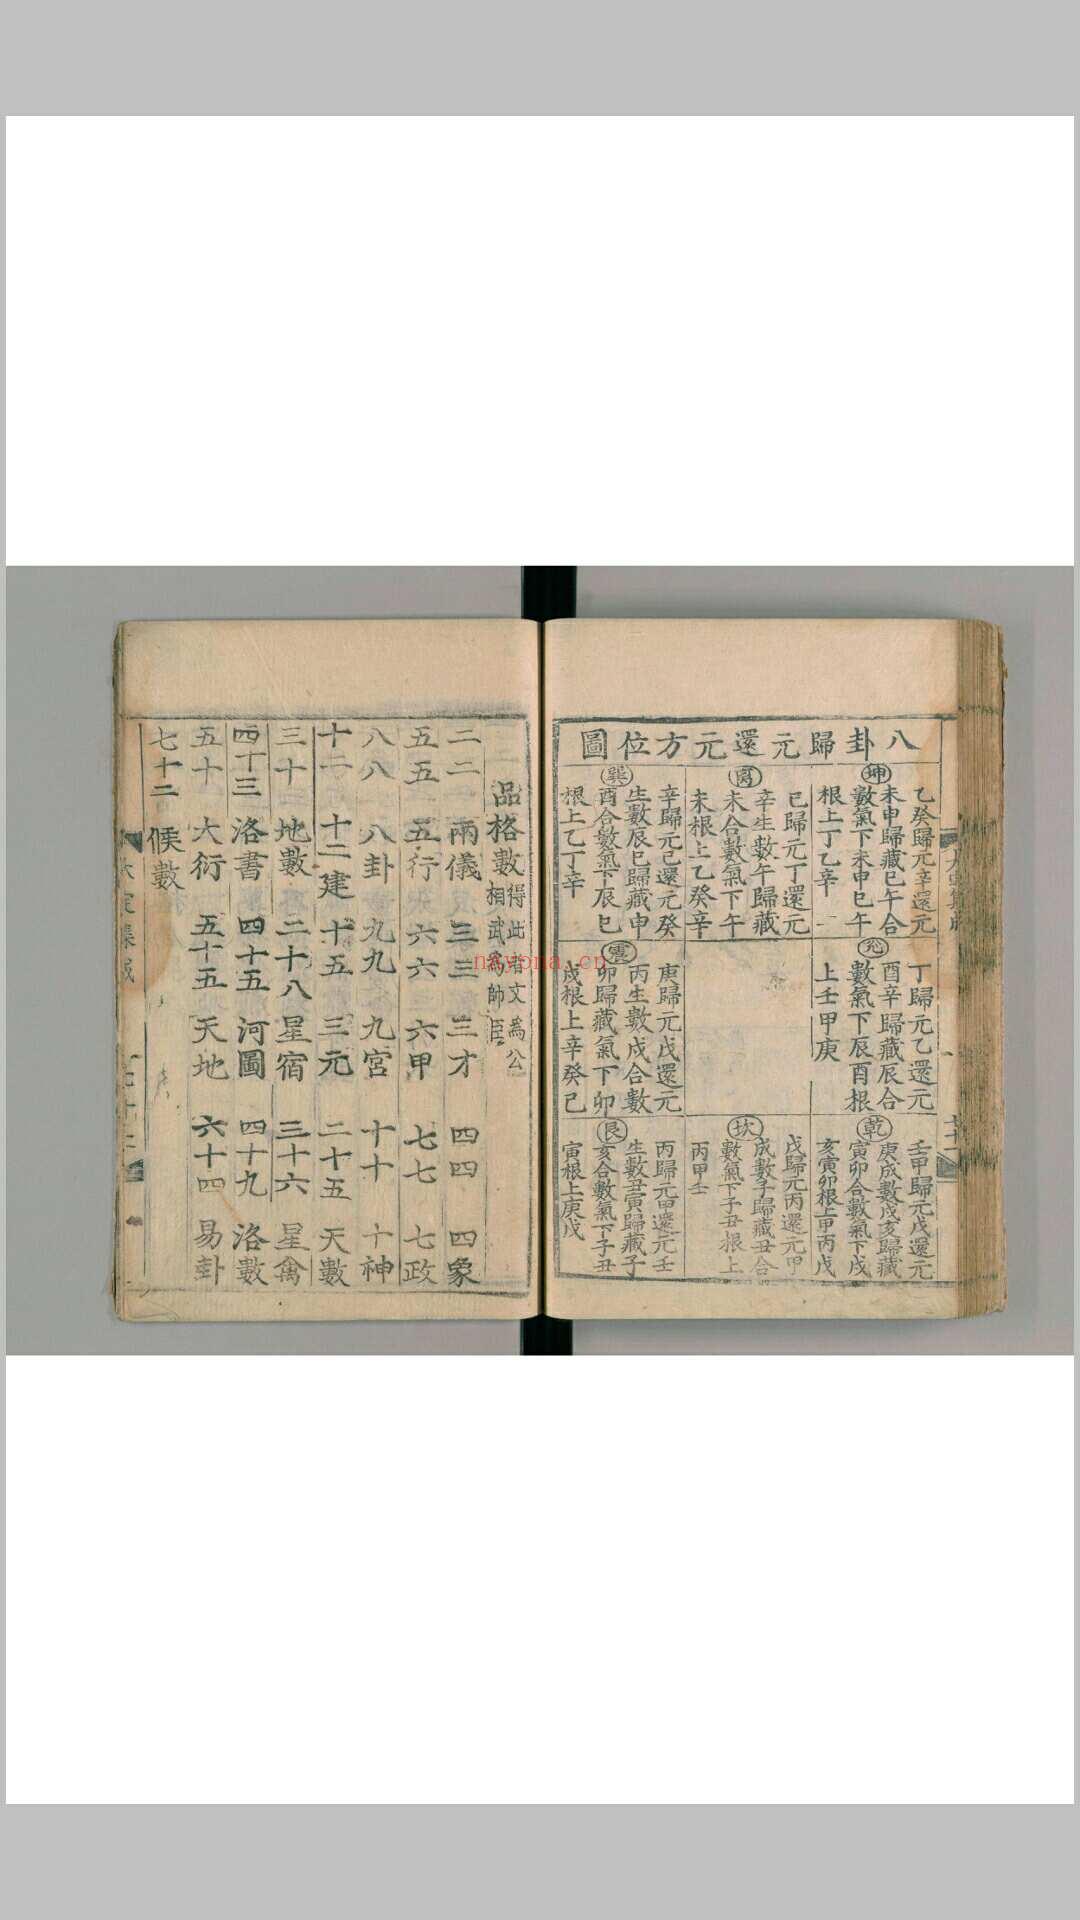 八卦歸元還元方位圖
坤
乙癸歸元辛還元
未申歸藏巳午合
數氣下未申巳午
根上丁乙辛
离
己歸元丁還元
辛生數午歸藏
未合數氣下午
未根上乙癸辛
巽
辛歸元己還元癸
生數辰巳歸藏申
酉合數氣下辰巳
根上乙丁辛
兊
丁歸元乙還元
酉辛歸藏辰合
數氣下辰酉根
上壬甲庚
震
庚歸元戊還元
丙生數戌合數
卯歸藏氣下卯
戌根上辛癸己
乾
壬甲歸元戊還元
庚成數戌亥歸藏
寅卯合數氣下戌
亥寅卯根上甲丙戊
坎
戊歸元丙還元甲
成數子歸藏丑合
數氣下子丑根上
丙甲壬
艮
丙歸元甲還元壬
生數丑寅歸藏子
亥合數氣下子丑
寅根上庚戊
品格數 得此者文為公
相武為帥臣
二二 兩儀 三三 三才 四四 四象
五五 五行 六六 六甲 七七 七政
八八 八卦 九九 九宮 十十 十神
十二 十二建 十五 三元 二十五 天數
三十 地數 二十八 星宿 三十六 星禽
四十三 洛書 四十五 河圖 四十九 洛數
五十 大衍 五十五 天地 六十四 易卦
七十二 候數
nayona.cn